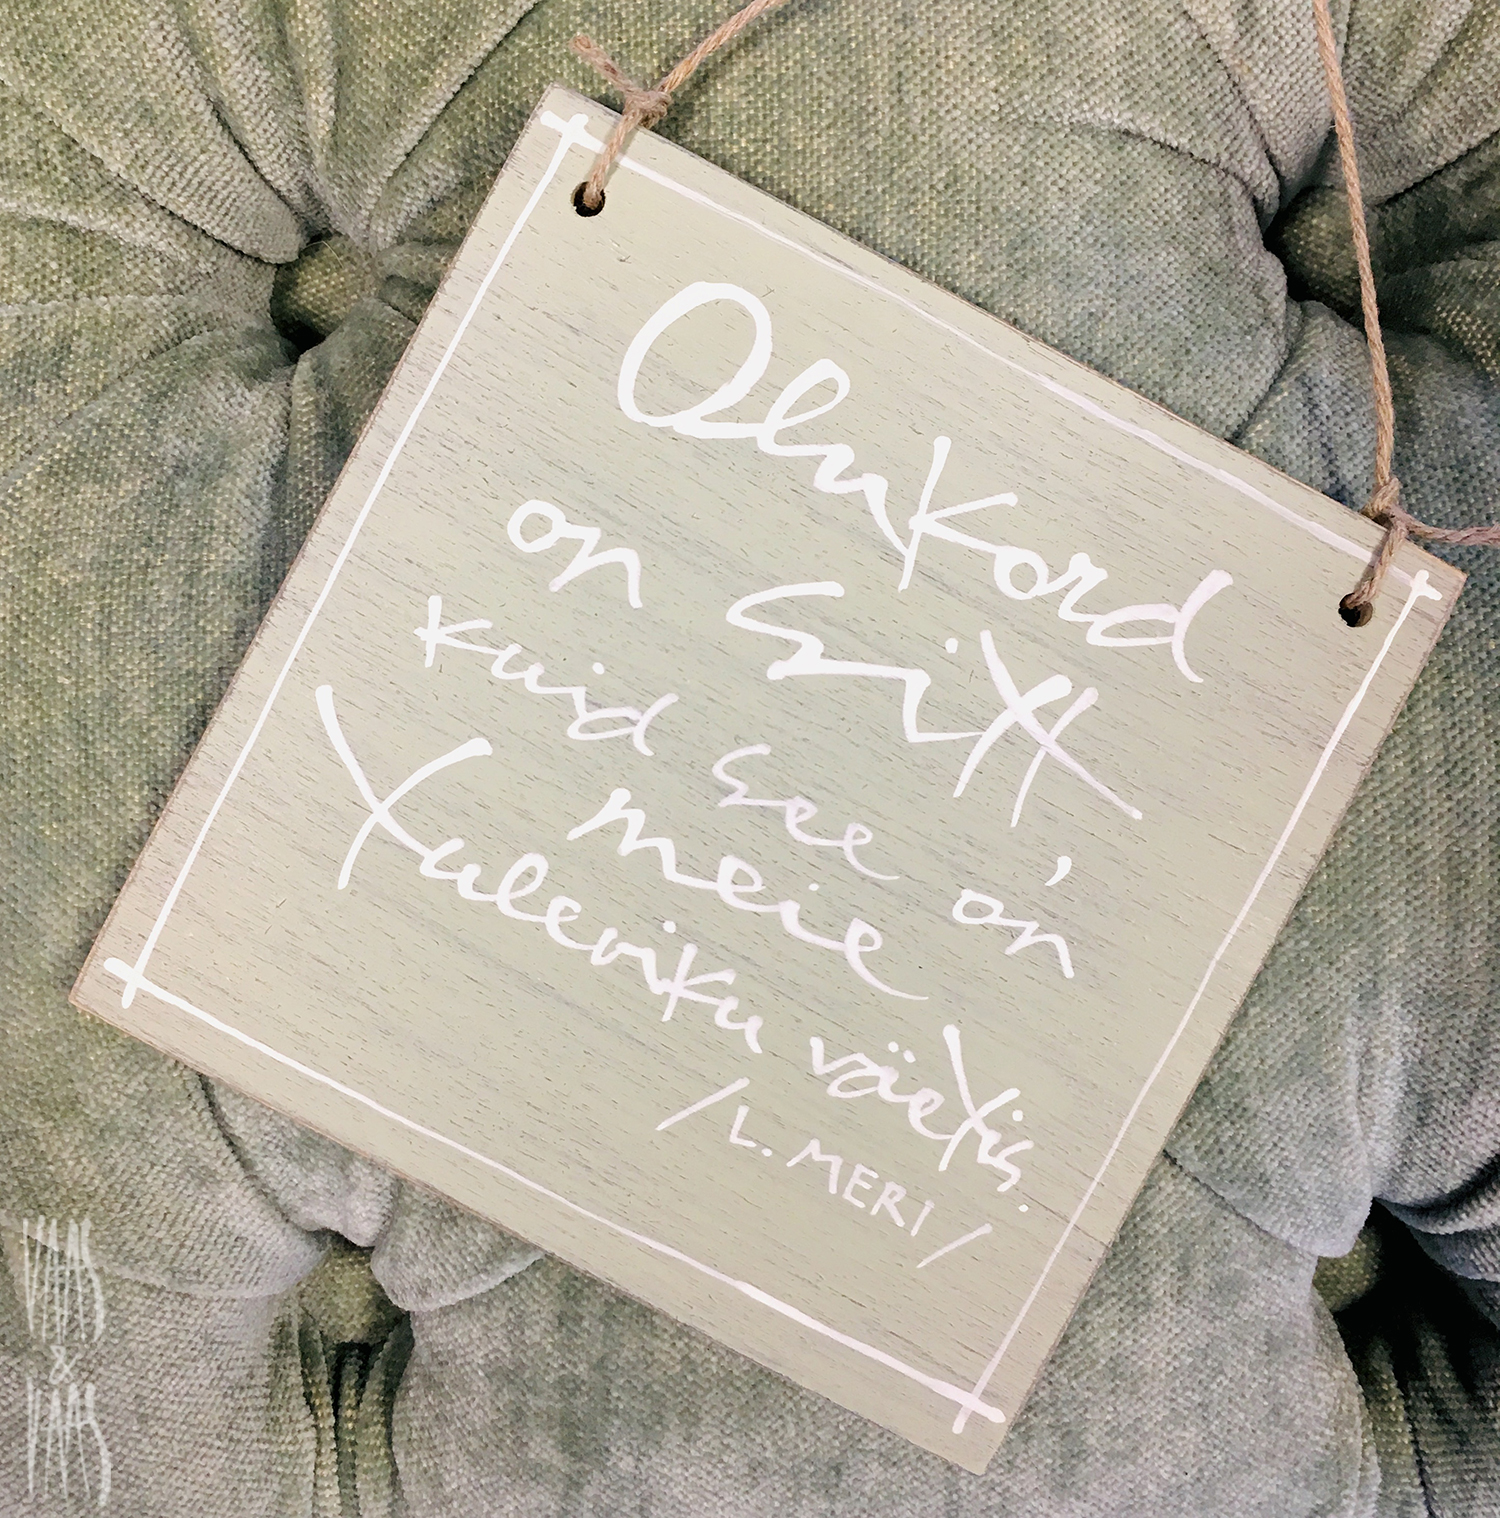 Olukord
on sitt,
kuid see on
meie
tuleviku väetis.
/L. MERI/
VAAS
&
VAAS